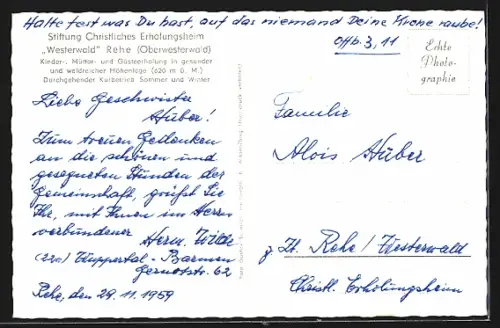 Halte fest was Du hast, auf das niemand Deine Krone raube!
Offb. 3, 11
Stiftung Christliches Erholungsheim
„Westerwald" Rehe (Oberwesterwald)
Kinder-, Mütter- und Gästeerholung in gesunder
und waldreicher Höhenlage (620 m ü. M.)
Durchgehender Kurbetrieb Sommer und Winter
Echte
Photo-
graphie
Liebe Geschwister
Hüber!
Zum treuen Gedenken
an die schönen und
gesegneten Stunden der
Gemeinschaft, grüßt Sie
Ihr, mit Ihnen im Herrn
verbundener Herm.
(22a) Wuppertal-Barmen
Gernotstr. 62
Rehe, den 29.11.1959
Familie
Alois Hüber
z. Zt. Rehe/Westerwald
Christl. Erholungsheim